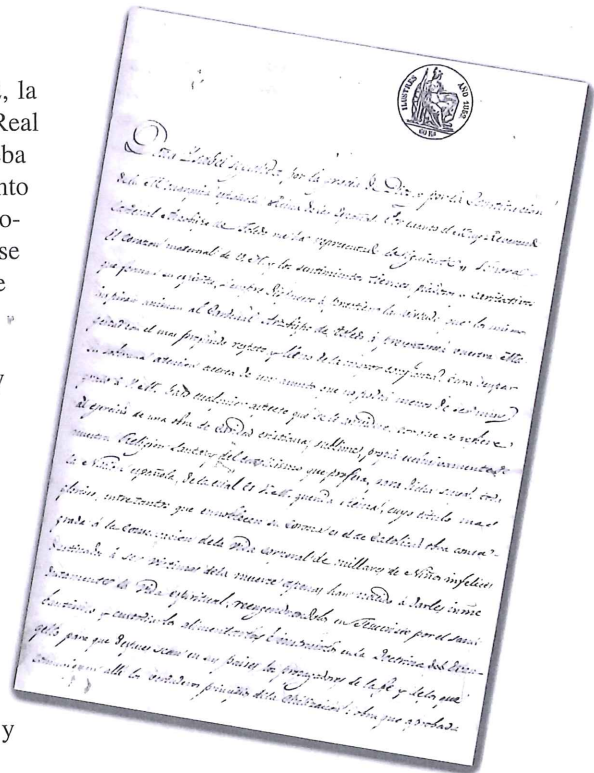 , la
Real
ba
nto
o-
se
e
y
y
ILUSTRES AÑO 1852
Doña Isabel segunda, por la gracia de Dios y por la Constitucion
de la Monarquia española Reina de las Españas. Por cuanto el Muy Reverendo
Cardenal Arzobispo de Toledo me ha representado lo siguiente, Señora
El corazon maternal de V.M. y los sentimientos tiernos, piadosos y caritativos
que forman su espiritu, siempre dispuesto á proteger la virtud, que los mismos
inspiran animan al Cardenal Arzobispo de Toledo á
el mas profundo respeto y lleno de la mayor confianza, para
su soberana atencion acerca de un asunto que no podrá menos de ser muy
grato á V.M. bajo cualquier aspecto que se le considere, porque se refiere
al ejercicio de una obra de caridad cristiana, sublime, propia exclusivamente de
nuestra Religion Santa y del catolicismo que profesa, para dicha suya, toda
la Nacion española, de la cual es V.M. querida Reina, cuyo titulo mas
glorioso, entre tantos que ennoblecen su Corona es el de Catolica: obra consa-
grada á la conservacion de la Vida corporal de millares de Niños infelices
destinados á ser victimas de la muerte apenas han nacido á darles
la Vida espiritual, reengendrandolos en Jesucristo por el Santo
Bautismo y alimentarlos é imponerlos en la Doctrina del Evan-
gelio para que despues sean en sus paises los propagadores de la fé y de los que
comuniquen alli los verdaderos principios de la civilizacion: obra que aprobada